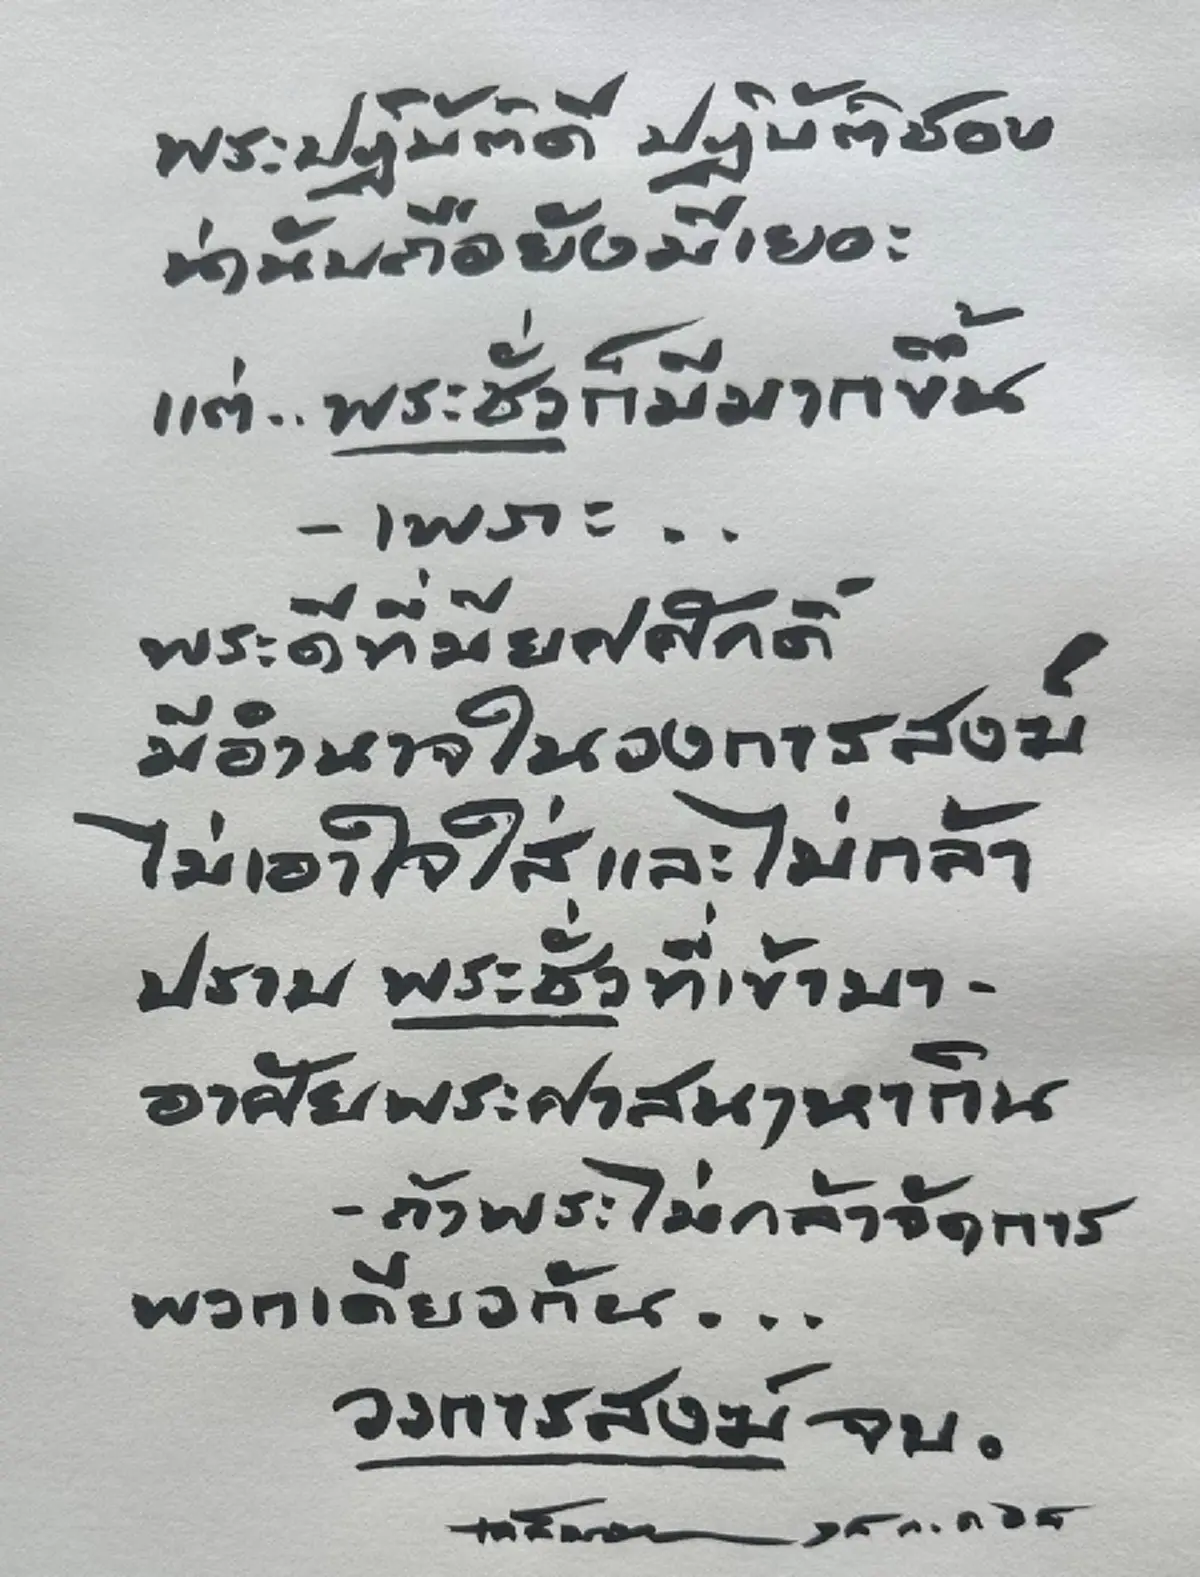 พระปฏิบัติดี ปฏิบัติชอบ
น่านับถือยังมีเยอะ
แต่.. พระชั่วก็มีมากขึ้น
- เพราะ . .
พระดีที่มียศศักดิ์
มีอำนาจในวงการสงฆ์
ไม่เอาใจใส่และไม่กล้า
ปราบ พระชั่วที่เข้ามา -
อาศัยพระศาสนาหากิน
- ถ้าพระไม่กล้าจัดการ
พวกเดียวกัน . . .
วงการสงฆ์ จบ.